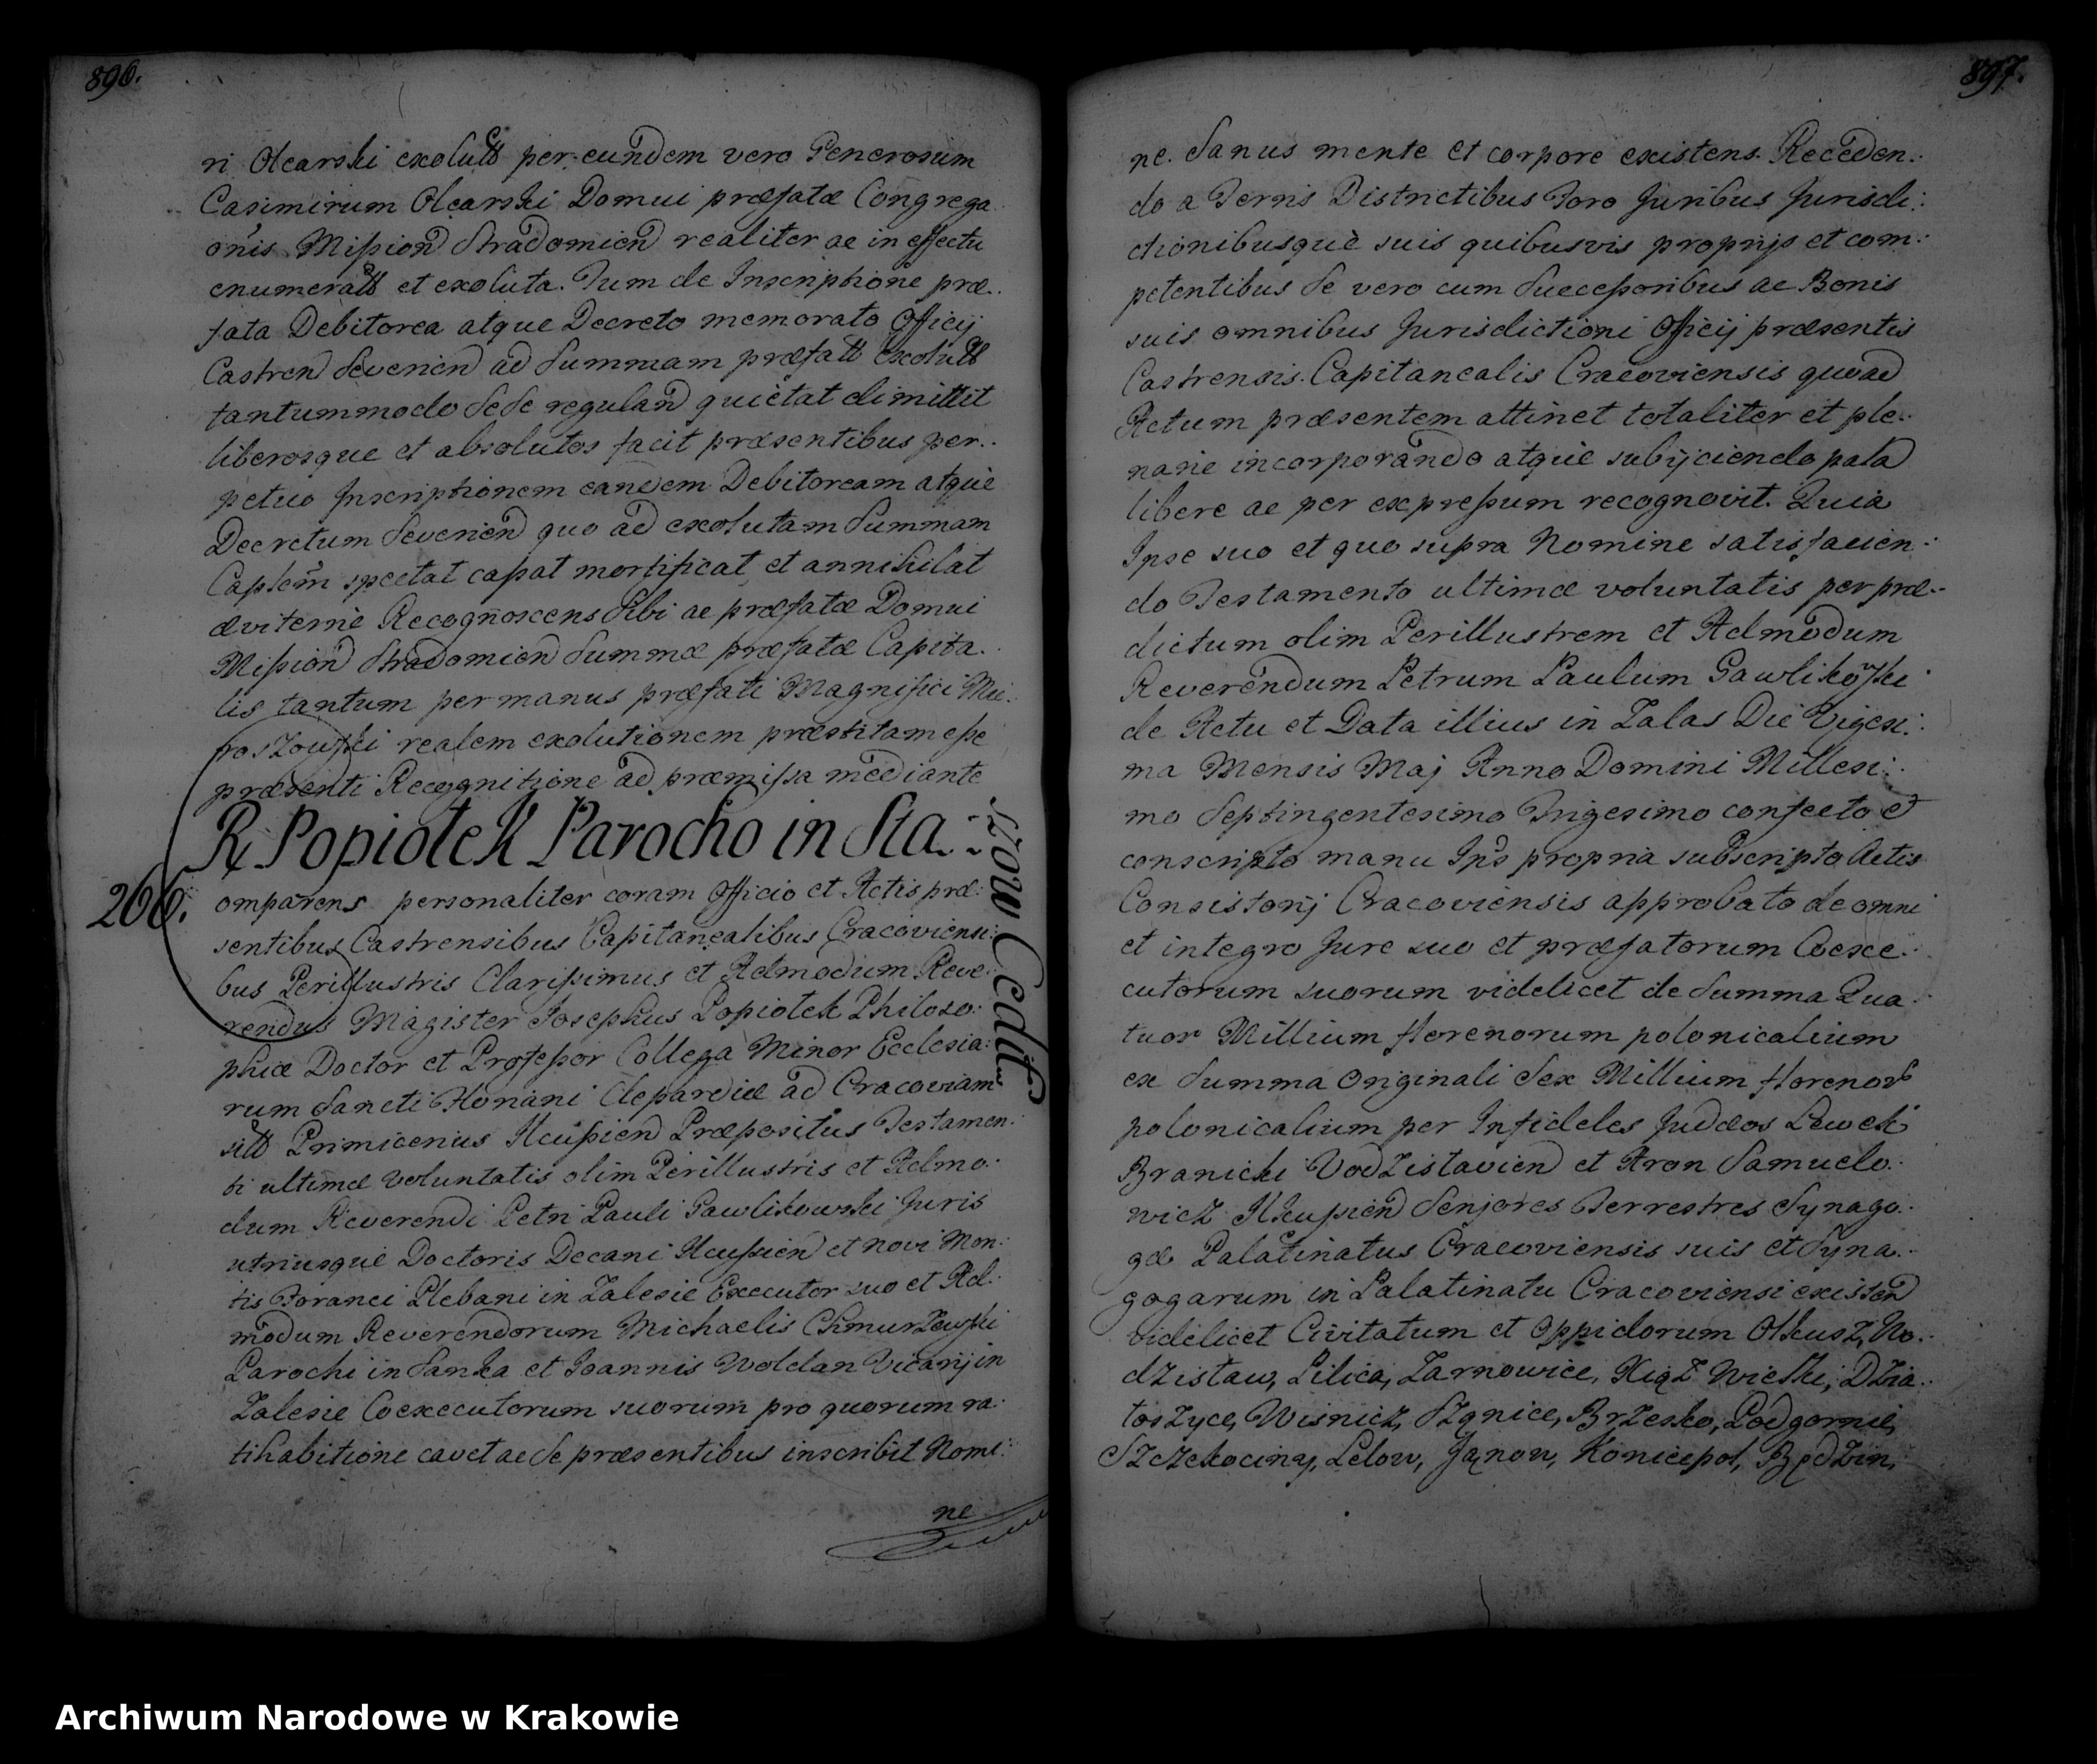 896.
ri Olearski exolutt per eundem vero Generosum
Casimirum Olearski Domui præfatæ Congrega
onis Mißion Stradomien realiter ac in effectu
enumeratt et exoluta. Tum de Inscriptione præ..
fata Debitorea atque Decreto memorato Officij
Castren Severien ad Summam præfatt exolutt
tantummodo sese regulan quietat dimittit
liberosque et absolutos facit præsentibus per..
petuo Inscriptionem eandem Debitoream atque
Decretum Severien quo ad exolutam Summam
Caplem spectat capat mortificat et annihilat
æviterne Recognoscens Sibi ac præfatæ Domui
Mißion Stradomien Summæ præfatæ Capita..
lis tantum per manus præfati Magnifici Mie..
roszowski realem exolutionem præstitam eße
præsenti Recognitione ad præmißa mediante
R. Popiołek Parocho in Sta..
szow Cedit
266.
Comparens personaliter coram Officio et Actis præ..
sentibus Castrensibus Capitanealibus Cracoviensi..
bus Perillustris Clarißimus et Admodum Reve..
rendus Magister Josephus Popiołek Philoso..
phiæ Doctor et Profeßor Collega Minor Ecclesia..
rum Sancti Floriani Clepardiæ ad Cracoviam
sitt Primicerius Ilcußien Præpositus Testamen..
ti ultimæ voluntatis olim Perillustris et Admo..
dum Reverendi Petri Pauli Gawlikowski Juris
utriusque Doctoris Decani Ilcußien et Novi Mon..
tis Foranei Plebani in Zalesie Executor suo et Ad..
modum Reverendorum Michaelis Chmurzewski
Parochi in Sanka et Joannis Woldan Vicarij in
Zalesie Coexecutorum suorum pro quorum ra..
tihabitione cavet ac se præsentibus inscribit Nomi..
ne
897.
ne. Sanus mente et corpore existens. Receden..
do a Terris Districtibus Foro Juribus Jurisdi..
ctionibusque suis quibusvis proprijs et com..
petentibus se vero cum Succeßoribus ac Bonis
suis omnibus Jurisdictioni Officij præsentis
Castrensis Capitanealis Cracoviensis quoad
Actum præsentem attinet totaliter et ple..
narie incorporando atque subijciendo pala
libere ac per expreßum recognovit. Quia
Ipse suo et quo supra Nomine satisfacien..
do Testamento ultimæ voluntatis per præ..
dictum olim Perillustrem et Admodum
Reverendum Petrum Paulum Gawlikowski
de Actu et Data illius in Zalas Die Vigesi..
ma Mensis Maj Anno Domini Millesi..
mo Septingentesimo Trigesimo confecto et
conscripto manu Ips propria subscripto Actis
Consistorij Cracoviensis approbato de omni
et integro Jure suo et præfatorum Coexe..
cutorum suorum videlicet de Summa Qua..
tuor Millium florenorum polonicalium
ex Summa Originali Sex Millium floreno
polonicalium per Infideles Judæos Lewek
Branicki Vodzislavien et Aron Samuelo..
wicz Ilkußien Senjores Terrestres Synago..
gæ Palatinatus Cracoviensis suis et Syna..
gogarum in Palatinatu Cracoviensi existen
videlicet Civitatum et Oppidorum Olkusz, Wo..
dzisław, Pilica, Żarnowice, Xiąż Wielki, Dzia..
łoszyce, Wisnicz, Brzesko, Podgornie,
Szczekociny, Lelow, Janow, Koniecpol, Będzin,
Archiwum Narodowe w Krakowie